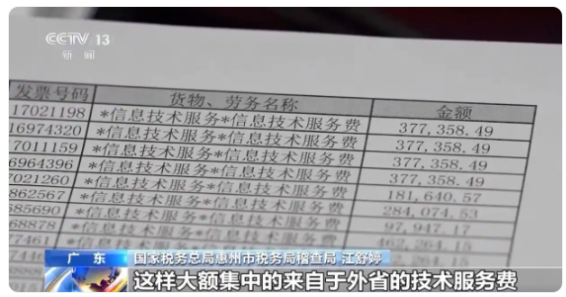 CCTV 13
新闻
发票号码 货物、劳务名称 金额
17021198 *信息技术服务*信息技术服务费 377,358.49
16974320 *信息技术服务*信息技术服务费 377,358.49
17011159 *信息技术服务*信息技术服务费 377,358.49
6964396 *信息技术服务*信息技术服务费 377,358.49
7021260 *信息技术服务*信息技术服务费 181,640.57
862567 *信息技术服务*信息技术服务费 284,074.53
685690 *信息技术服务*信息技术服务费 97,947.17
68878 *信息技术服务*信息技术服务费 262,264.15
广东 国家税务总局惠州市税务局稽查局 江舒婷
这样大额集中的来自于外省的技术服务费